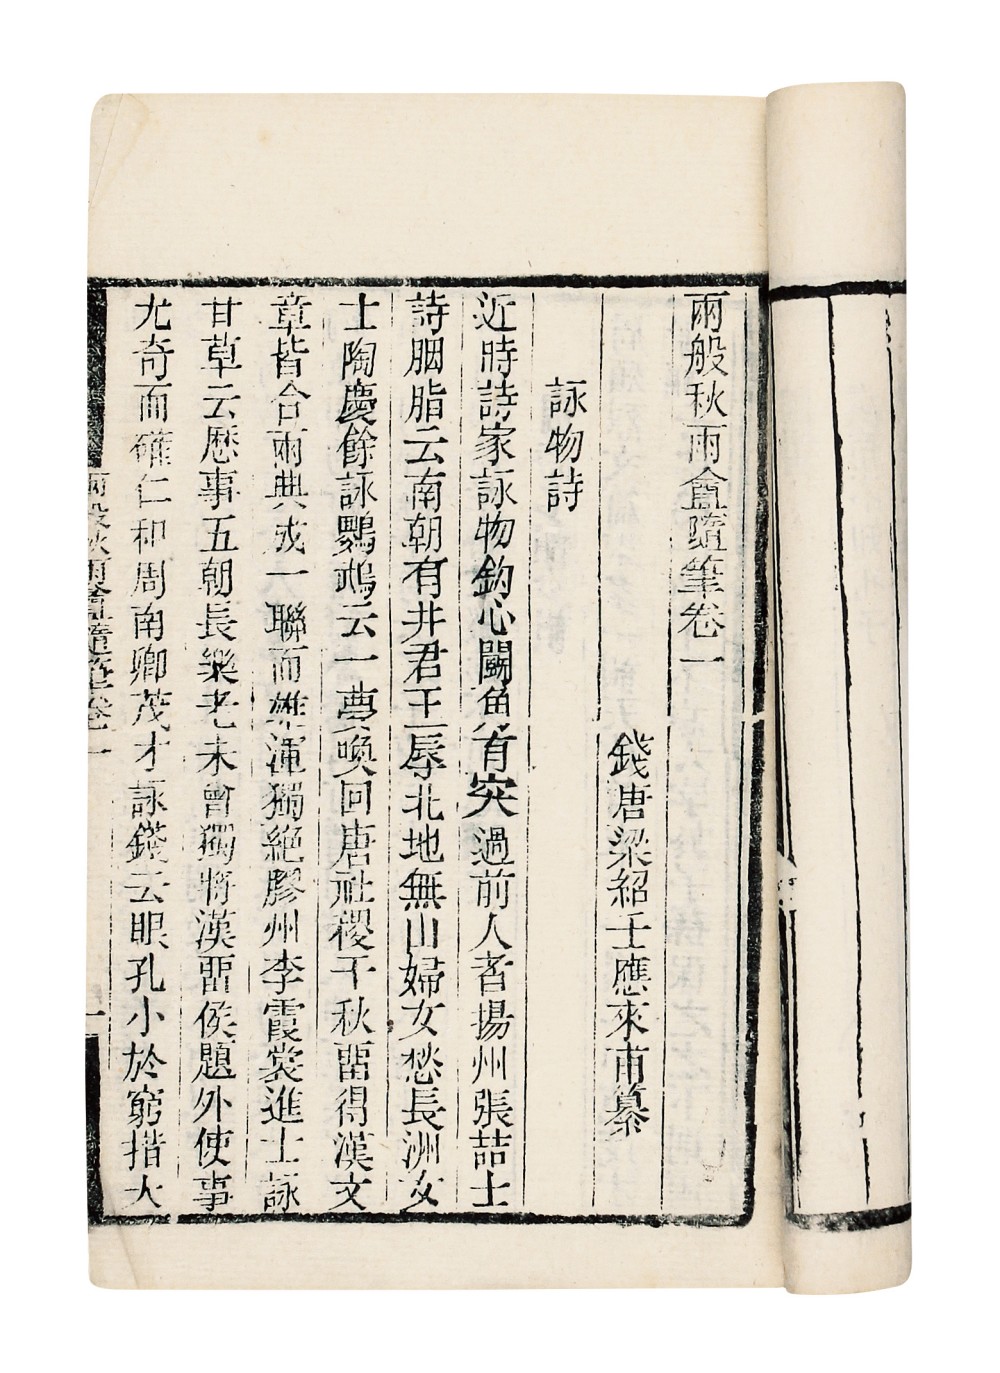 兩般秋雨盦隨筆卷一
錢唐梁紹壬應來甫纂
詠物詩
近時詩家詠物鈎心鬭角有突過前人者揚州張喆士
詩胭脂云南朝有井君王辱北地無山婦女愁長洲女
士陶慶餘詠鸚鵡云一夢喚回唐社稷千秋畱得漢文
章皆合兩典成一聯而雄渾獨絕膠州李霞裳進士詠
甘草云歷事五朝長樂老未曾獨將漢畱侯題外使事
尤奇而確仁和周南卿茂才詠錢云眼孔小於窮措大
兩般秋雨盦隨筆卷一
一